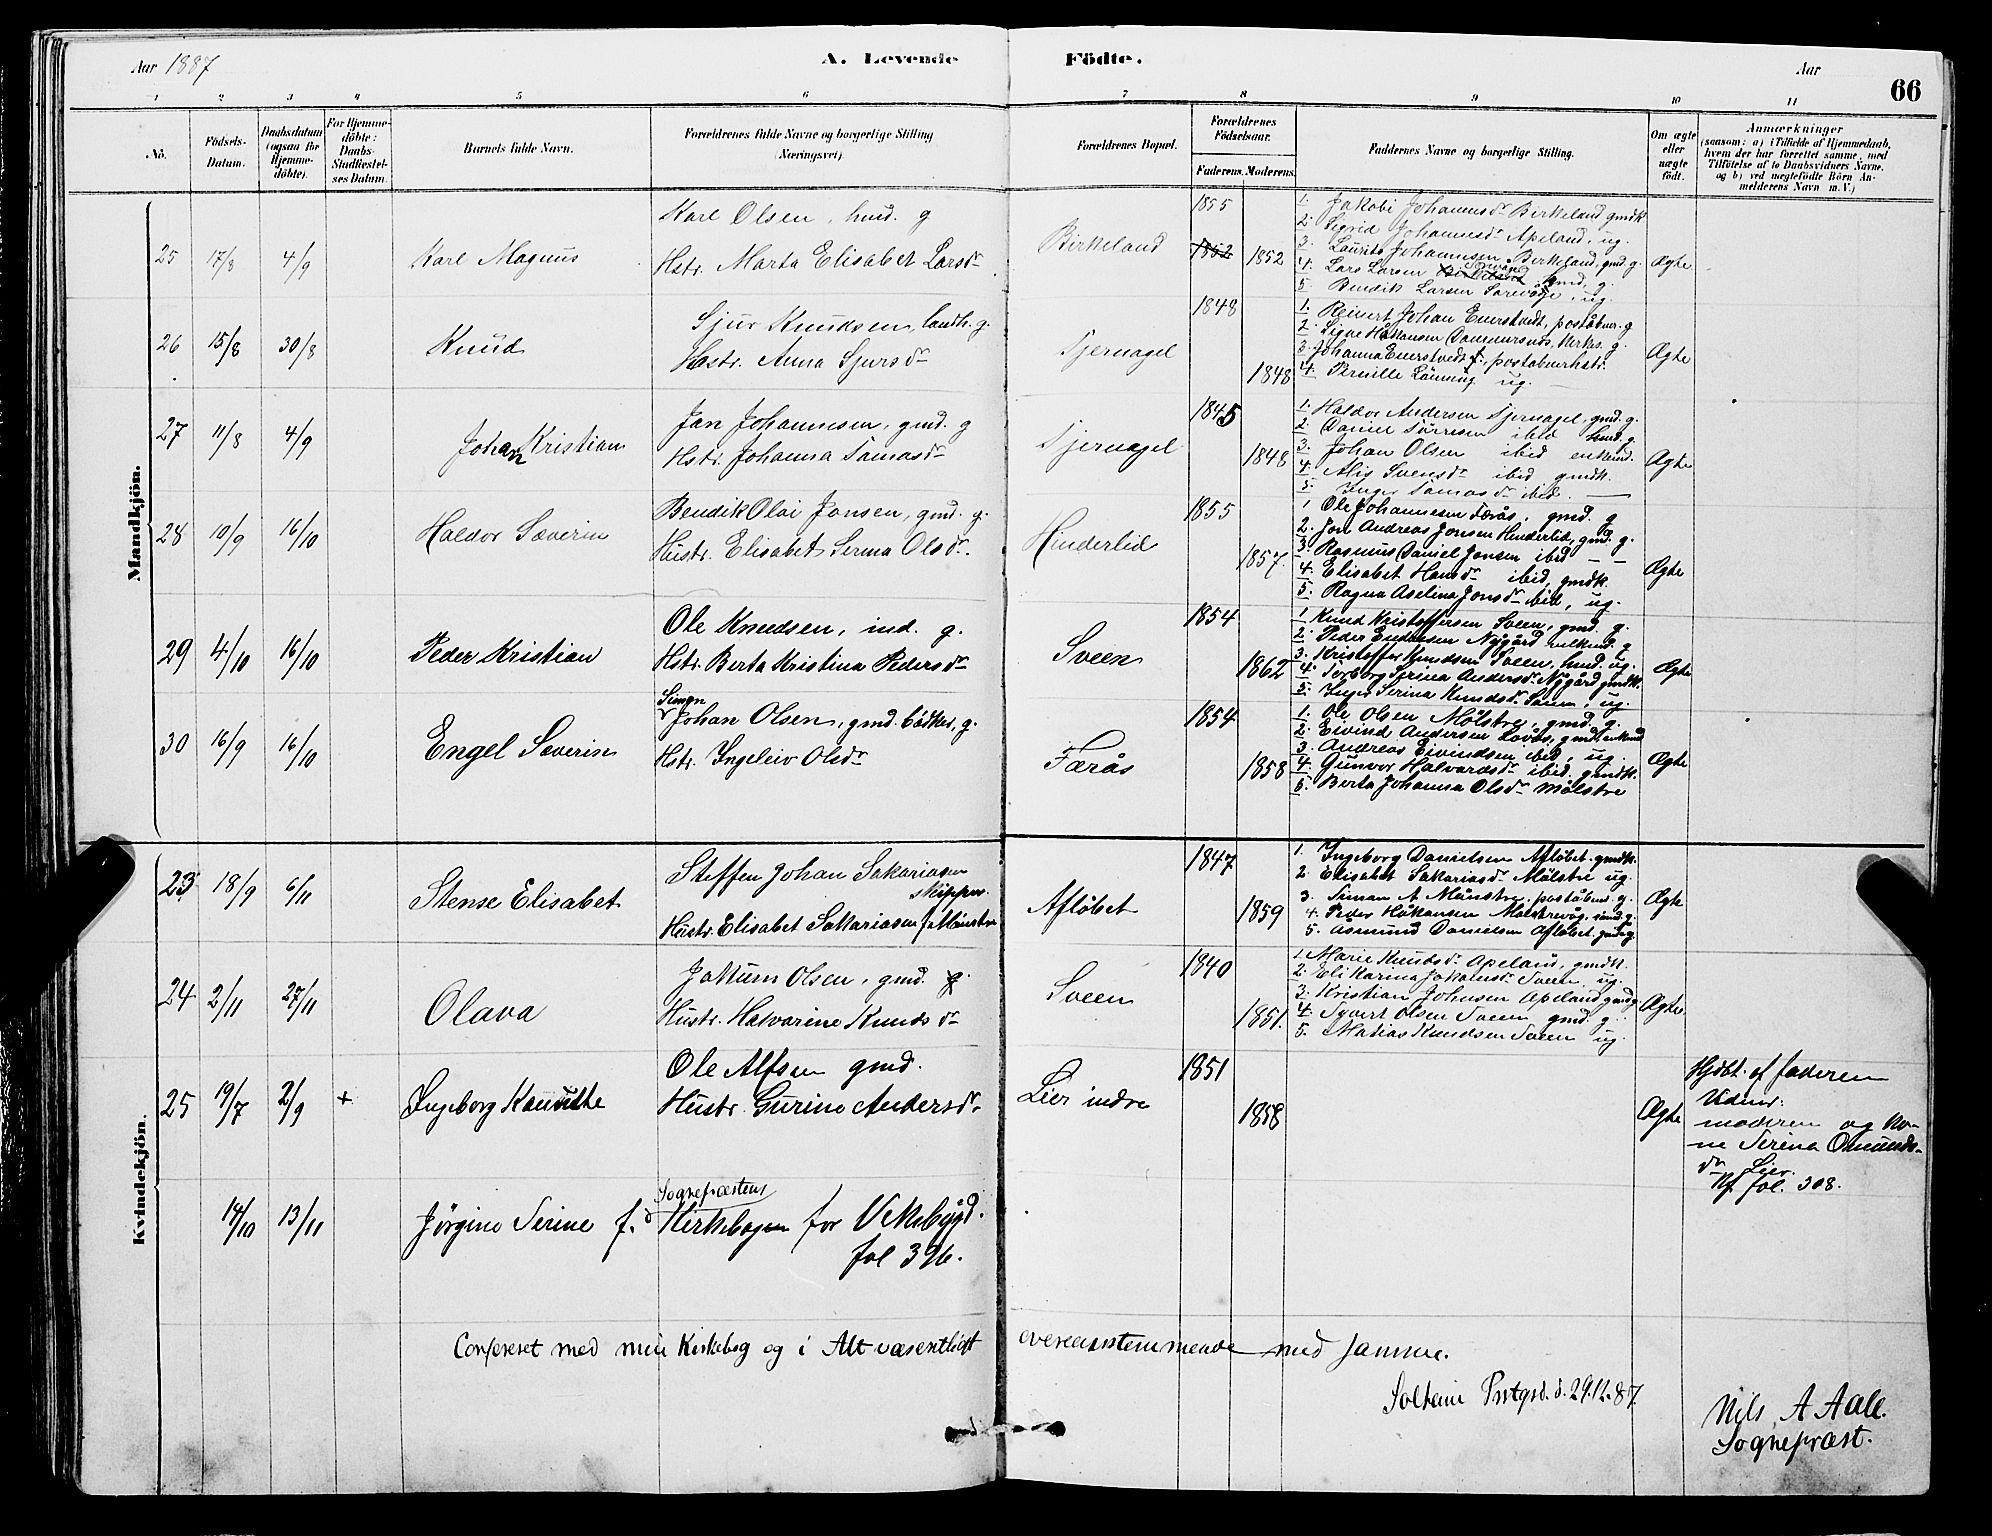 Aar 1887
A. Levende Födte.
Aar
66
1 2 3 4 5 6 7 8 9 10 11
No.
Födsels-Datum.
Daabsdatum (ogsaa for Hjemme-döbte).
For Hjemme-döbte: Daabs-Stadfæstel-ses Datum.
Barnets fulde Navn.
Forældrenes fulde Navne og borgerlige Stilling (Næringsvei).
Forældrenes Bopæl.
Forældrenes Födselsaar.
Faderens. Moderens.
Faddernes Navne og borgerlige Stilling.
Om ægte eller uægte födt.
Anmærkninger
(saasom: a) i Tilfælde af Hjemmedaab, hvem der har forrettet samme, med Tilföielse af to Daabsvidners Navne, og b) ved uægtefödte Börn An-melderens Navn m. V.)
Mandkjön.
25 17/8 4/9 Karl Magnus
Karl Olsen, hmd. g
Hstr. Marta Elisabet Larsdr
Birkeland 1855 1852 1852
1. Jakobi Johannesdr Birkeland gmdk
2. Sigrid Johannesdr Apeland, ug.
3. Laurits Johannesen Birkeland, gmd. g.
4. Lars Larsen
5 Bendik Larsen
Ægte
26 15/8 30/8 Knud
Sjur Knudsen, landh. g.
Hstr. Anna Sjursdr
Tjernagel 1848 1848
1. Reinert Johan Enerstvedt, poståbner. g
2. Signe Håkansen
3. Johanna Enerstvedt f:, poståbnerhstr.
4. Pernille Lönning ug.
Ægte
27 11/8 4/9 Johan Kristian
Jan Johannesen, gmd. g
Hstr. Johanna Tamasdr
Tjernagel 1845 1848
1. Haldor Andersen Tjernagel, gmd. g.
2. Daniel Törresen ibid hmd. g.
3. Johan Olsen ibid enkemd.
4. Alis Svensdr ibid gmdk.
5. Inger Tamasdr ibid.
Ægte
28 10/9 16/10 Haldor Severin
Bendik Olai Jonsen, gmd. g.
Hustr. Elisabet Serina Olsdr.
Hinderlid 1855 1857.
1 Ole Johannesen Færås, gmd. g
2. Jon Andreas Jonsen Hinderlid, gmd. g.
3. Rasmus Daniel Jonsen ibid — —
4. Elisabet Hansdr ibid, gmdk.
5. Ragna Aselina Jonsdr ibid, ug.
Ægte
29 4/10 16/10 Peder Kristian
Ole Knudsen, ind. g.
Hstr. Berta Kristina Pedersdr
Sveen 1854 1862
1 Knud Kristoffersen Sveen, gmd. g.
2. Peder Endresen Nygård enkmd. g
3. Kristoffer Knudsen Sveen, hmd. ug.
4. Torborg Serina Andersdr Nygård gmdk.
5. Inger Serina Knudsdr Sveen, ug.
Ægte
30 16/9 16/10 Engel Severin
Simon
Johan Olsen, gmd. bödker, g.
Hstr. Ingeleiv Olsdr
Færås 1854 1858
1. Ole Olsen Mölstre, gmd. g.
2. Eivind Andersen
3. Andreas Eivindsen ibid, ug.
4. Gunvor Halvardsdr ibid. gmdk.
5. Berta Johanna Olsdr Mölstre
Ægte
Kvindekjön.
23 18/9 6/11 Stense Elisabet
Steffen Johan Sakariasen
skipper
Hustr. Elisabet Sakariasen f.
Aflöbet 1847 1859
1. Ingeborg Danielsen Aflöbet. gmdk.
2. Elisabet Sakariasdr Mölstre ug.
3. Simon A Mönstre, poståbner. g.
4. Peder Håkansen Mölstrevåg,
5. Asmund Danielsen Aflöbet.
Ægte
24 2/11 27/11 Olava
Jakum Olsen, gmd. g.
Hustr. Halvarine Knudsdr
Sveen 1840 1851.
1. Marie Knudsdr Apeland, gmdk.
2. Eli Karina Jakumsdr Sveen ug.
3. Kristian Johnsen Apeland gmd g
4. Syvert Olsen Sveen gmd. g
5. Matias Knudsen Sveen ug.
Ægte.
25 19/7 2/9 + Ingeborg
Ole Alfsen gmd.
Hustr. Gurine Andersdr.
Lier indre 1851 1858
Ægte
Hjdbt. af faderen
Vidner:
moderen og Ko-
ne Serina Omunds-
dr Lier.
Nf. fol. 308.
14/10 13/11 Jørgine Serine f.d
Sognepræstens
Kirkebogen for Viksbygd.
fol 396.
Confereret med min Kirkebog og i Alt væsentligt overensstemmende med samme.
Solheim Prstgrd. d. 29.12.87.
Nils A Aall.
Sognepræst.